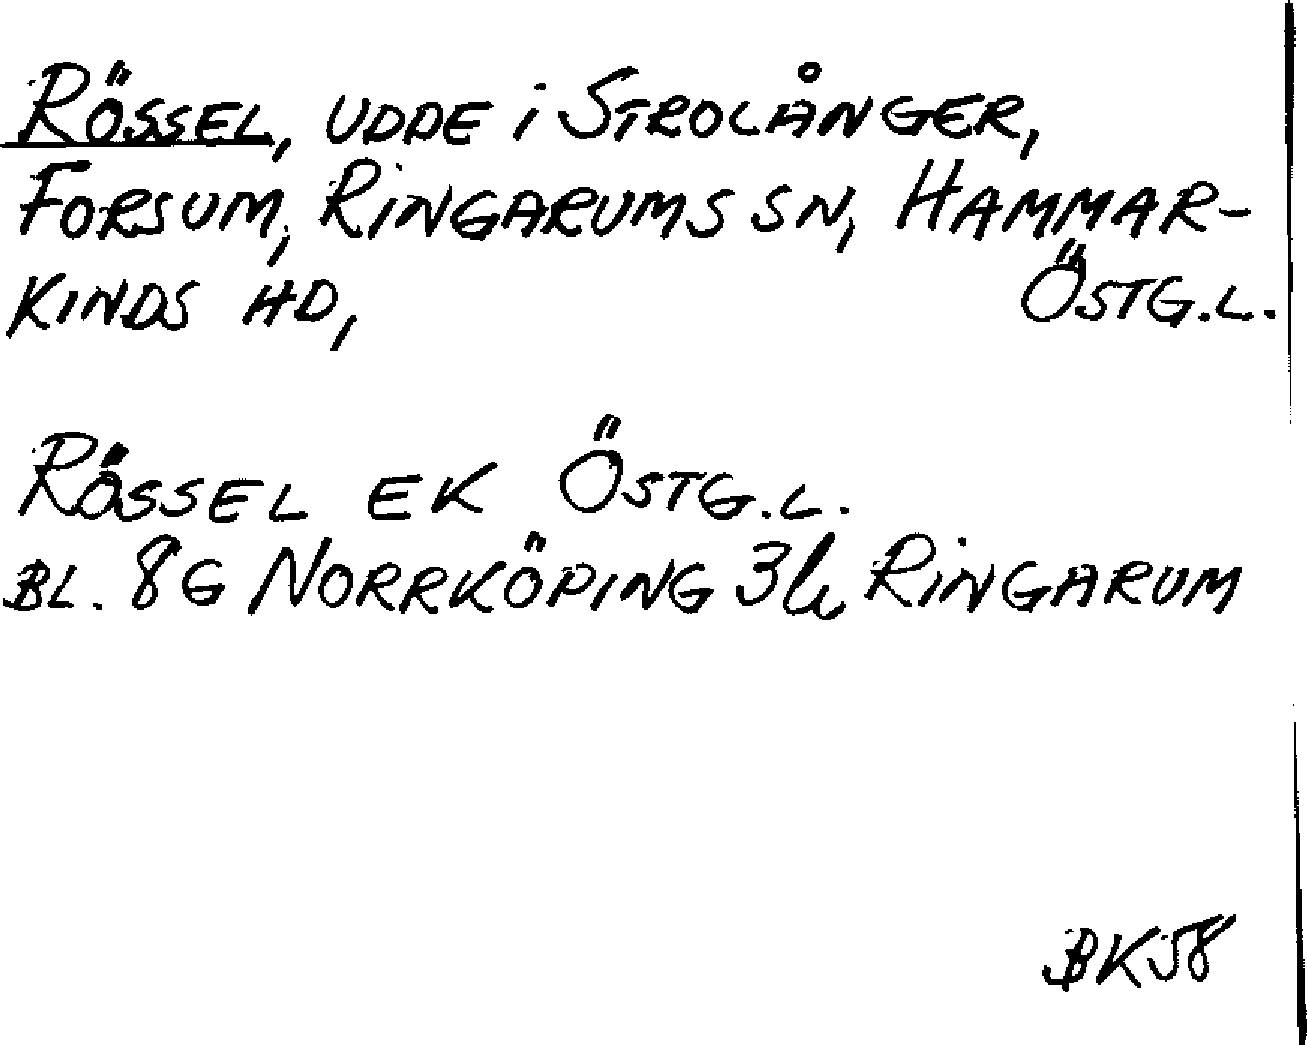 RÖSSEL, UDDE i STROLÅNGER,
FORSUM, RINGARUMS SN, HAMMAR-
KINDS HD, ÖSTG.L.
RÖSSEL EK ÖSTG.L.
BL. 8G NORRKÖPING 3h RINGARUM
BK58